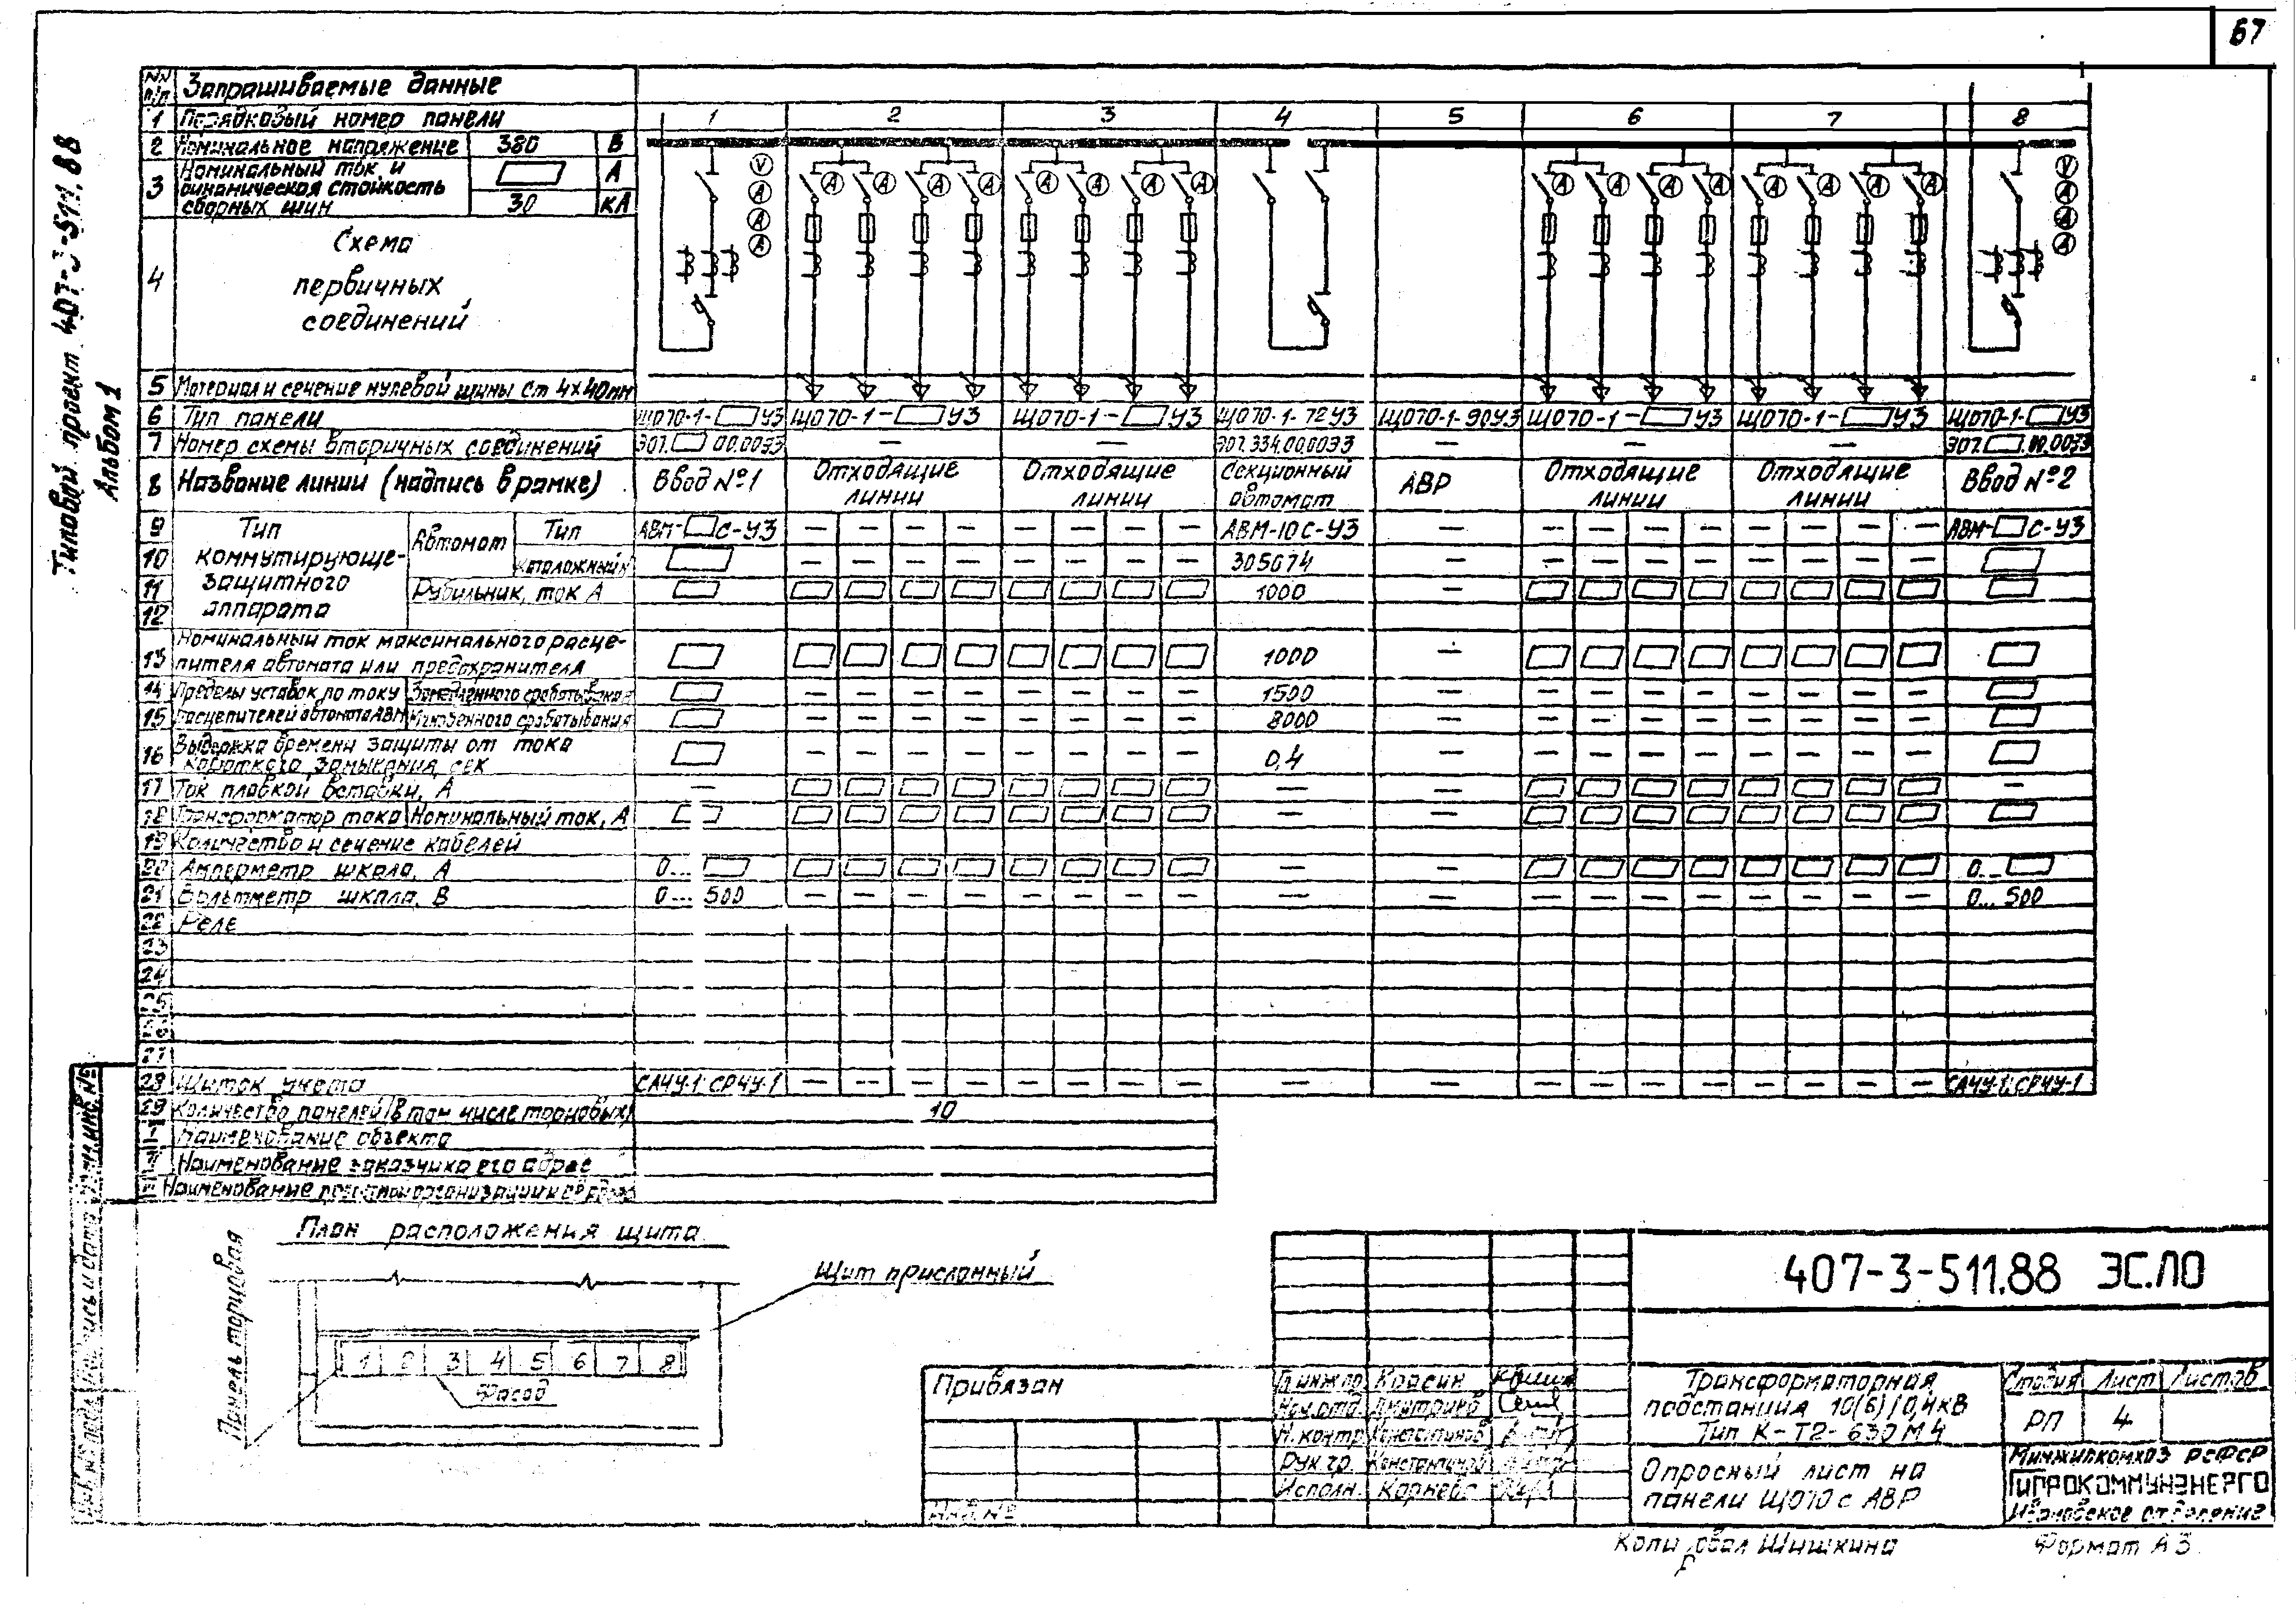 67
Типовой проект 407-3-511.88
Альбом 1
№№ п/п Запрашиваемые данные
1 Порядковый номер панели 1 2 3 4 5 6 7 8
2 Номинальное напряжение 380 В
3 Номинальный ток и динамическая стойкость сборных шин А
30 кА
4 Схема первичных соединений
V А А А
А А А А А А А А
А А А А А А А А
V А А А
5 Материал и сечение нулевой шины Ст 4х40мм
6 Тип панели ЩО70-1- УЗ ЩО70-1- УЗ ЩО70-1- УЗ ЩО70-1-72УЗ ЩО70-1-90УЗ ЩО70-1- УЗ ЩО70-1- УЗ ЩО70-1- УЗ
7 Номер схемы вторичных соединений ЭО7. 00.00ЭЗ — — ЭО7.334.00.00ЭЗ — — — ЭО7. .00.00ЭЗ
8 Название линии (надпись в рамке) Ввод №1 Отходящие линии Отходящие линии Секционный автомат АВР Отходящие линии Отходящие линии Ввод №2
Тип коммутирующе-защитного аппарата
9 Автомат Тип АВМ- С-УЗ — — — — — — — — АВМ-10С-УЗ — — — — — — — — — АВМ- С-УЗ
10 Каталожный № — — — — — — — — 305674 — — — — — — — — —
11 Рубильник, ток А 1000 —
12
13 Номинальный ток максимального расцепителя автомата или предохранителя 1000 —
14 Пределы уставок по току расцепителей автомата АВМ Замедленного срабатывания — — — — — — — — 1500 — — — — — — — — —
15 Мгновенного срабатывания — — — — — — — — 8000 — — — — — — — — —
16 Выдержка времени защиты от тока короткого замыкания, сек — — — — — — — — 0,4 — — — — — — — — —
17 Ток плавкой вставки, А — — — —
18 Трансформатор тока Номинальный ток, А — —
19 Количество и сечение кабелей
20 Амперметр шкала, А 0... — — 0...
21 Вольтметр шкала, В 0... 500 — — — — — — — — — — — — — — — — — — 0... 500
22 Реле
23
24
25
26
27
28 Щиток учета САЧУ-1; СРЧУ-1 — — — — — — — — — — — — — — — — — — САЧУ-1; СРЧУ-1
29 Количество панелей (в том числе торцовых) 10
I Наименование объекта
II Наименование заказчика его адрес
III Наименование
План расположения щита
Щит прислонный
Панель торцовая
1 2 3 4 5 6 7 8
Фасад
407-3-511.88 ЭС.ЛО
Привязан
Инв.№
Гл.инж.пр Красин
Нач.отд. Дмитриев
Н. контр. Константинов
Рук. гр. Константинов
Исполн. Корнева
Трансформаторная
подстанция 10(6)/0,4кВ
Тип К-Т2-630М4
Стадия Лист Листов
РП 4
Опросный лист на
панели ЩО70 с АВР
Минжилкомхоз РСФСР
ГИПРОКОММУНЭНЕРГО
Ивановское отделение
Копировал Шишкина
Формат А3